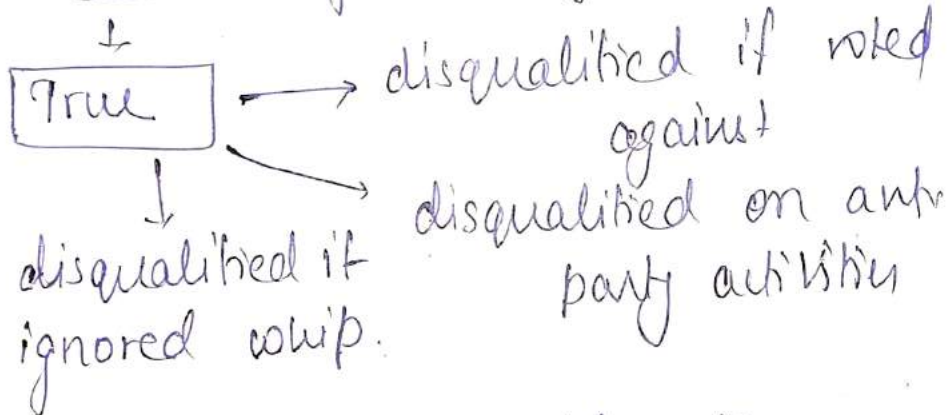 True
disqualified if voted
against
disqualified on anti
party activities
disqualified if
ignored whip.